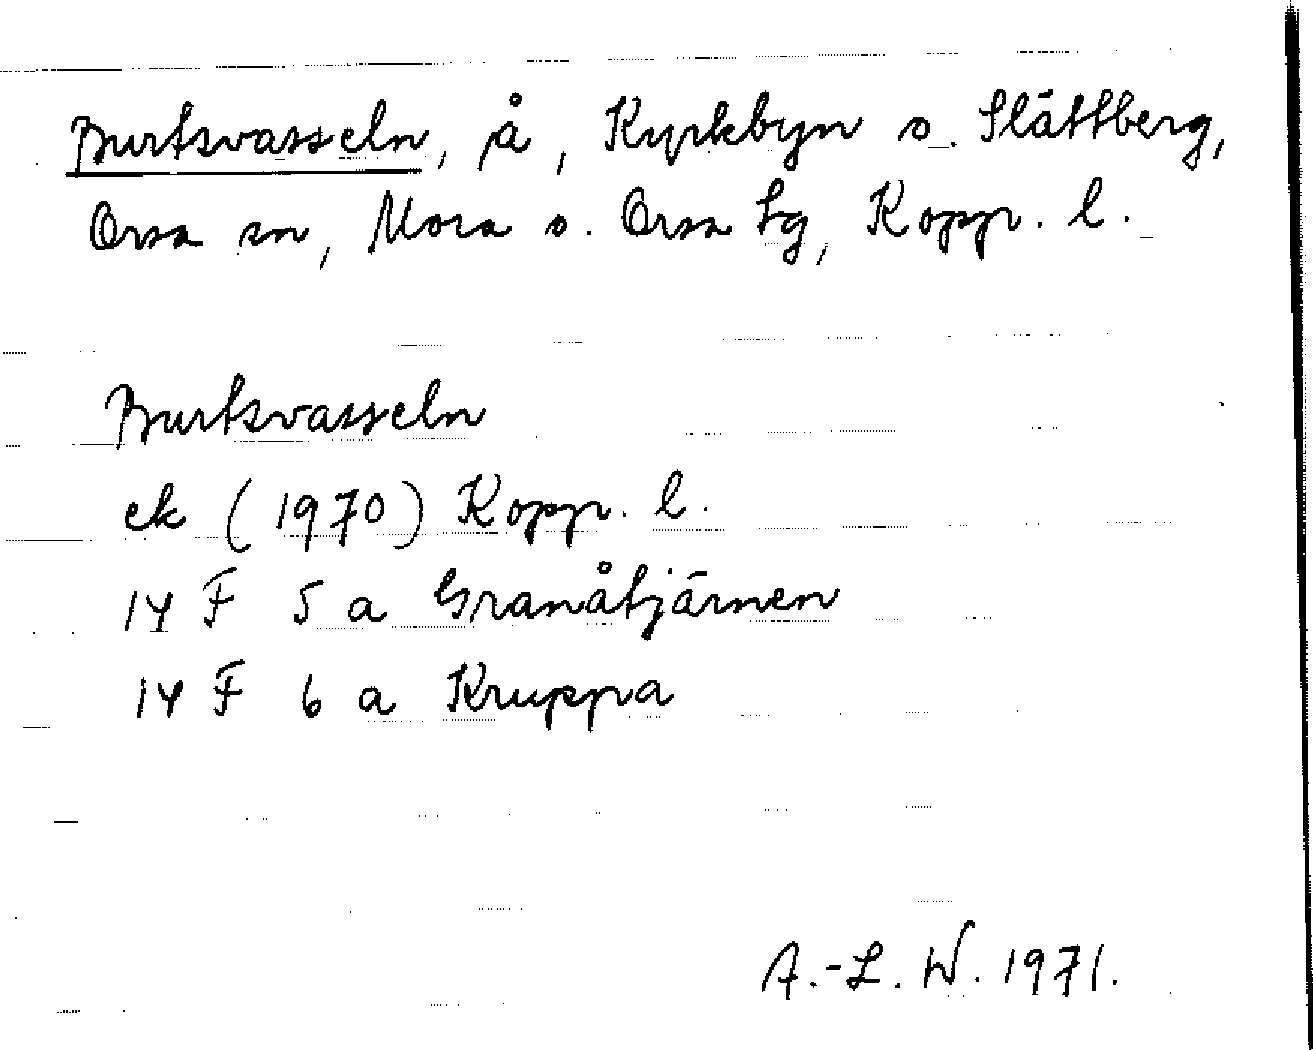 Burtsvasseln, å, Kyrkbyn o. Slättberg,
Orsa sn, Mora o. Orsa tg, Kopp. l.
Burtsvasseln
ek (1970) Kopp. l.
14 F 5 a Granåtjärnen
14 F 6 a Kruppa
A.-L. W. 1971.